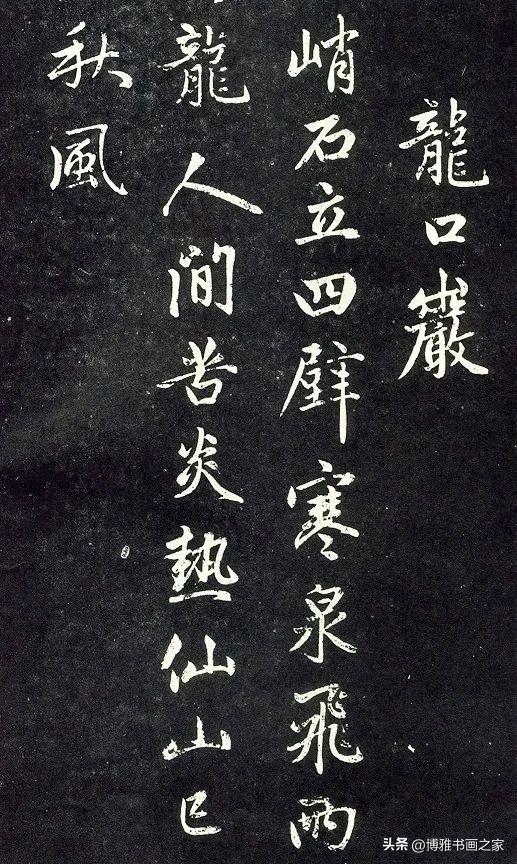 龍口巖
峭石立四壁寒泉飛兩
龍人間苦炎熱仙山已
秋風
头条 @博雅书画之家